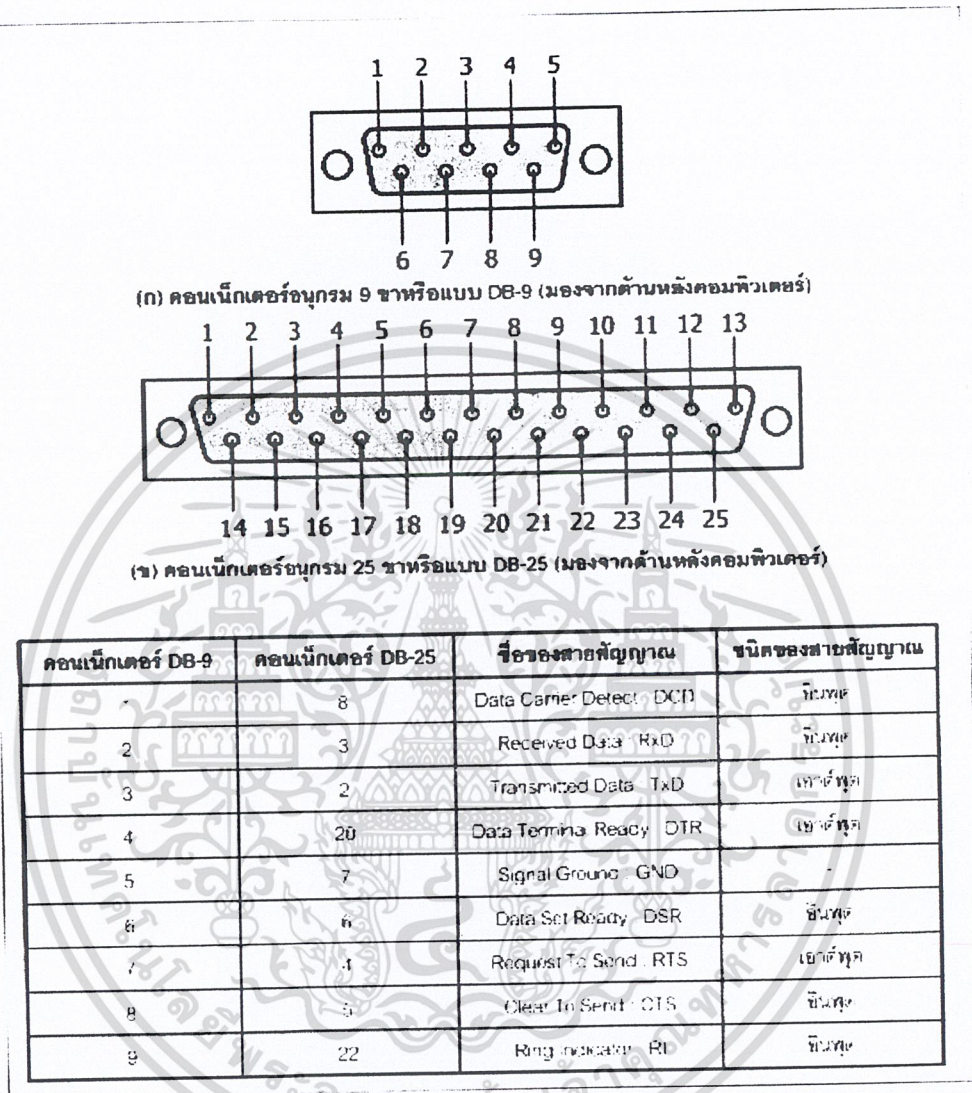 1 2 3 4 5
6 7 8 9
(ก) คอนเน็กเตอร์อนุกรม 9 ขาหรือแบบ DB-9 (มองจากด้านหลังคอมพิวเตอร์)
1 2 3 4 5 6 7 8 9 10 11 12 13
14 15 16 17 18 19 20 21 22 23 24 25
(ข) คอนเน็กเตอร์อนุกรม 25 ขาหรือแบบ DB-25 (มองจากด้านหลังคอมพิวเตอร์)
คอนเน็กเตอร์ DB-9 คอนเน็กเตอร์ DB-25 ชื่อของสายสัญญาณ ชนิดของสายสัญญาณ
8 Data Carrier Detect : DCD อินพุต
2 3 Received Data : RxD อินพุต
3 2 Transmitted Data : TxD เอาต์พุต
4 20 Data Terminal Ready : DTR เอาต์พุต
5 7 Signal Ground : GND -
6 6 Data Set Ready : DSR อินพุต
7 4 Request To Send : RTS เอาต์พุต
8 5 Clear To Send : CTS อินพุต
9 22 Ring Indicator : RI อินพุต